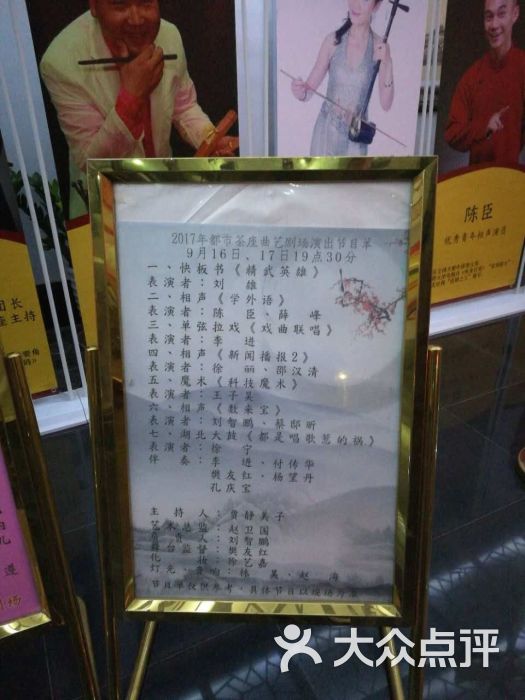 2017年都市茶座曲艺剧场演出节目单
9月16日、17日19点30分
一、快板书《精武英雄》
表演者：刘 雄
二、相声《学外语》
表演者：陈 臣、薛 峰
三、单弦拉戏《戏曲联唱》
表演者：李 进
四、相声《新闻播报2》
表演者：徐 丽、邵汉清
五、魔术《科技魔术》
表演者：王子昊
六、相声《数来宝》
表演者：刘智鹏、蔡邸昕
七、湖北大鼓《都是唱歌惹的祸》
表演者：徐 宁
伴 奏：李 进、付传华
樊友红、杨望丹
孔庆宝
主 持 人：贾静美子
艺术总监：赵卫国
刘智鹏
樊友红
徐艺嘉
节目单仅供参考，具体节目以现场为准
陈臣
优秀青年相声演员
团长
座主持
大众点评